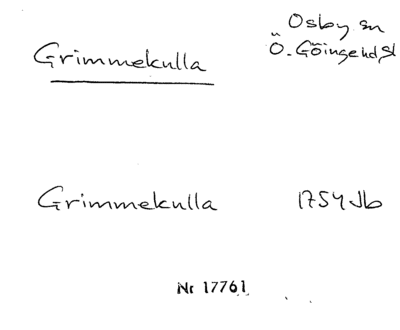 Osby sn
Grimmekulla
Ö. Göinge hd, Sk
Grimmekulla 1754 Jb
Nr 17761